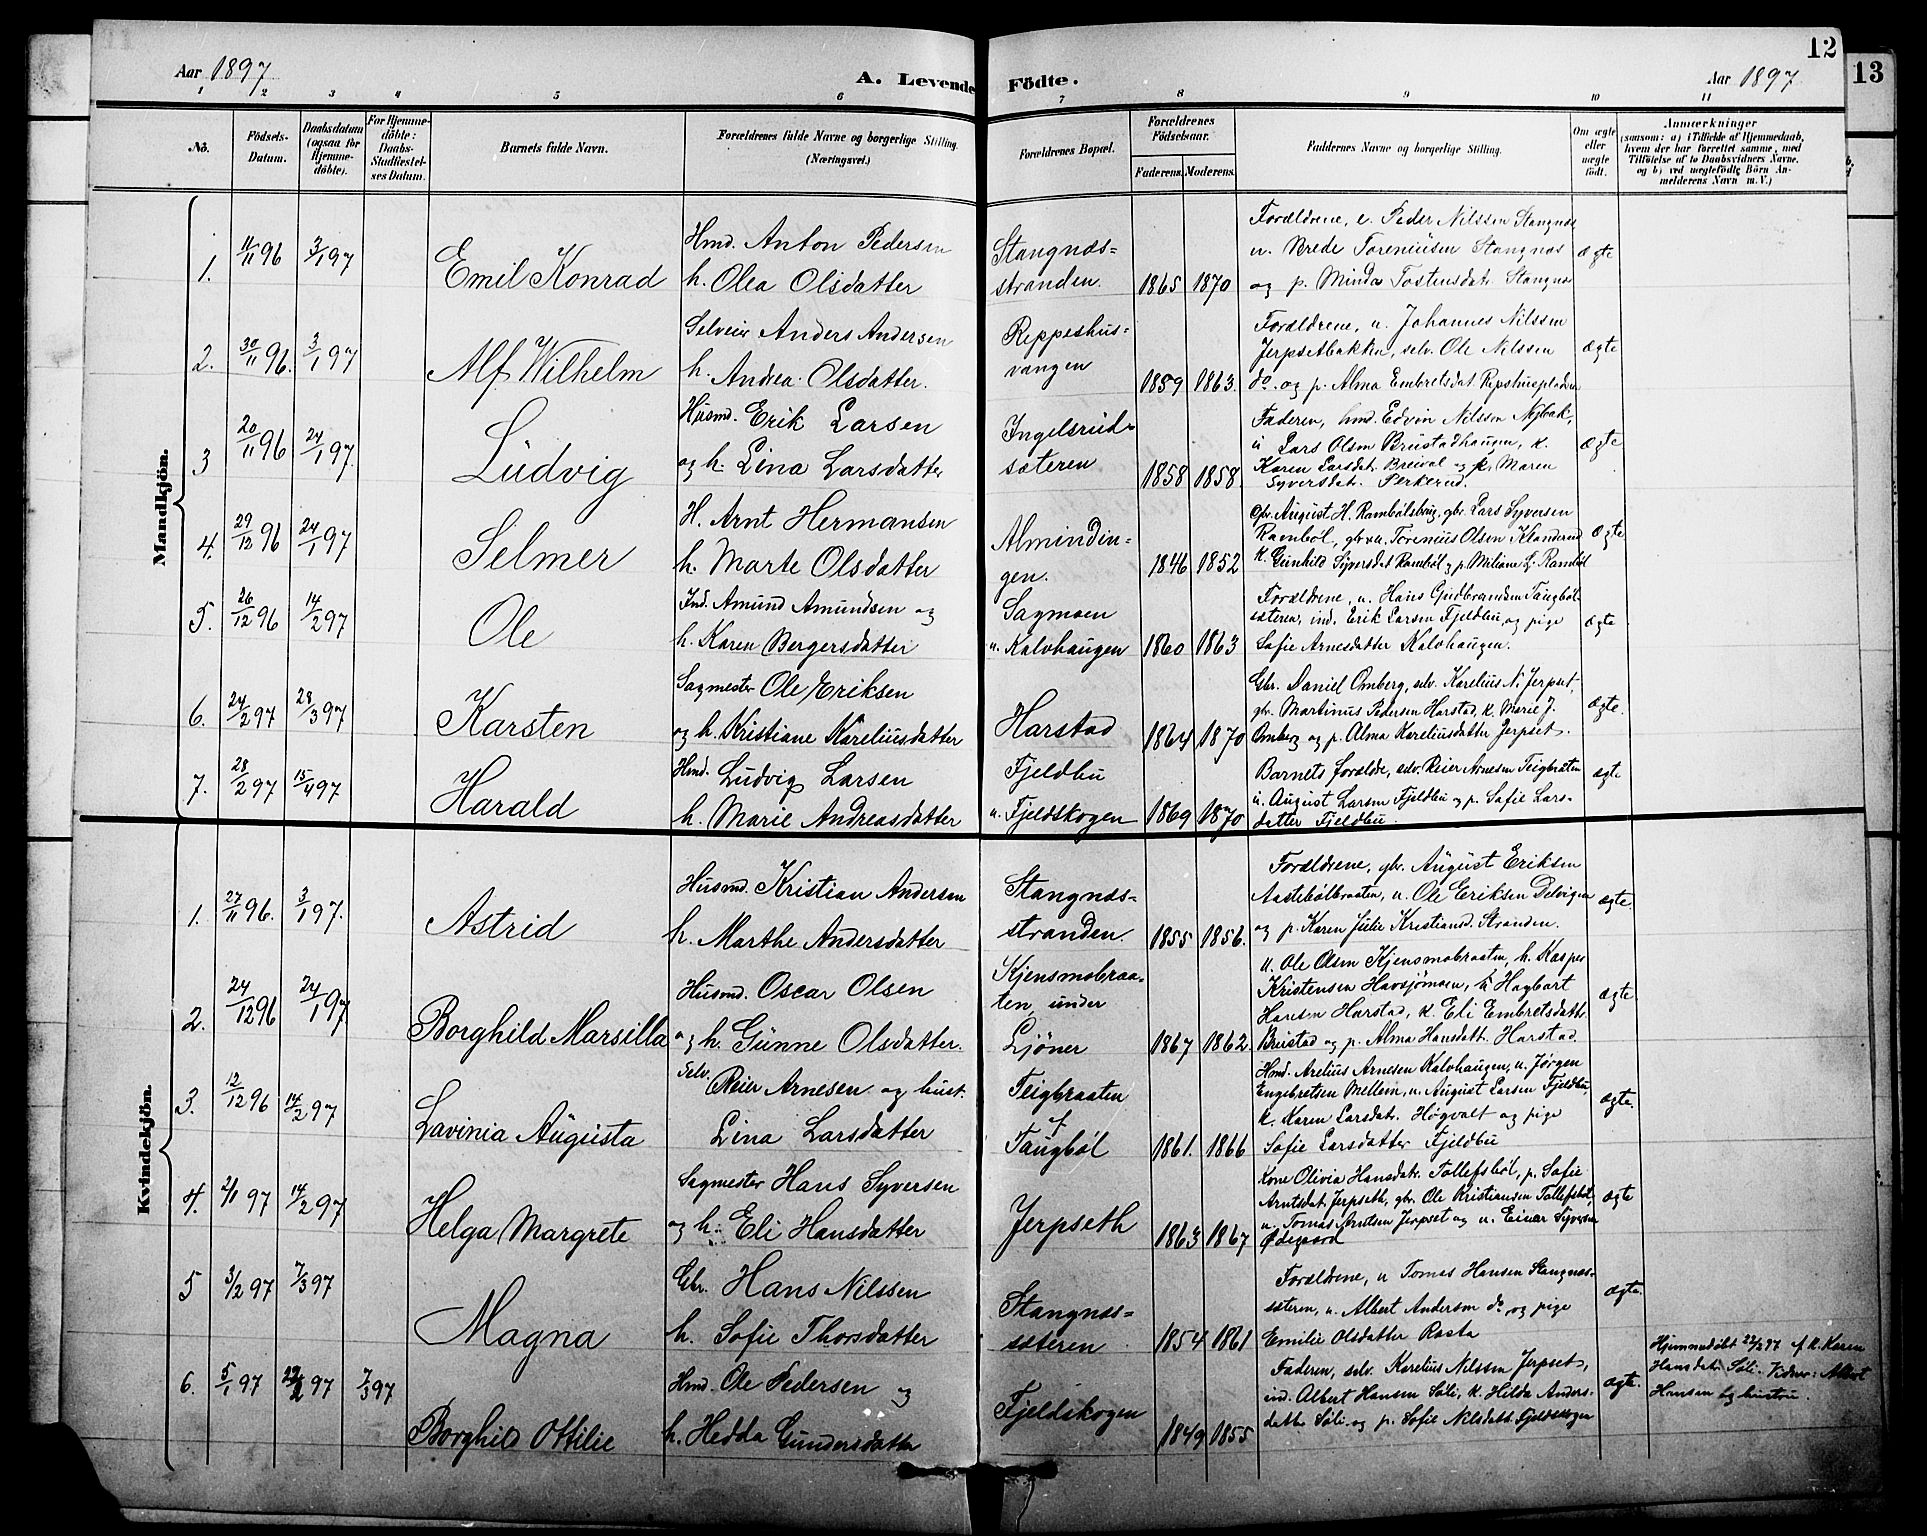 12
13
Aar 1897
A. Levende Födte.
Aar 1897
1 2 3 4 5 6 7 8 9 10 11
No.
Födsels-Datum.
Daabsdatum (ogsaa for Hjemme-döbte).
For Hjemme-döbte: Daabs-Stadfæstel-ses Datum.
Barnets fulde Navn.
Forældrenes fulde Navne og borgerlige Stilling. (Næringsvei.)
Forældrenes Bopæl.
Forældrenes Födselsaar.
Faderens. Moderens.
Faddernes Navne og borgerlige Stilling.
Om ægte eller uægte födt.
Anmærkninger
(saasom: a) i Tilfælde af Hjemmedaab,
hvem der har forrettet samme, med
Tilföielse af to Daabsvidners Navne,
og b) ved uægtefödte Börn An-
melderens Navn m. V.)
Mandkjön.
1. 11/11 96 3/1 97 Emil Konrad
Hmd. Anton Pedersen
h. Olea Olsdatter
Stangnæs-
stranden. 1865 1870
Forældrene, e. Peder Nilssen Stangnæs
u. Brede Toreniusen Stangnæs
og p. Minda Tostensdatr. Stangnæs
ægte
2. 30/11 96. 3/1 97 Alf Wilhelm
Selveier Anders Andersen
h. Andrea Olsdatter.
Reppeshus-
vangen 1859 1863.
Forældrene, u. Johannes Nilssen
Jerpsetbakken, selv. Ole Nilssen
do. og p. Alma Embretsdat. Repshuspladsen
ægte
3 20/11 96 24/1 97. Ludvig
Husmd. Erik Larsen
og h. Lina Larsdatter
Ingelsrud-
sæteren 1858 1858.
Faderen, hmd. Edvin Nilssen Nybak,
u. Lars Olsen Brustadhaugen, k.
Karen Larsdat. Breival og p. Maren
Syversdat. Perkerud.
ægte
4. 29/12 96 24/1 97 Selmer
H. Arnt Hermansen
h. Marte Olsdatter
Almindin-
gen. 1846 1852
Gbr. August H. Rambölsbrug, gbr. Lars Syversen
Ramböl, gbrsn. Torenius Olsen Klanderud
k. Gunhild Syversdat Ramböl og p. Miliane L. Ramböl
ægte
5. 26/12 96 14/2 97 Ole
Ind. Amund Amundsen og
h. Karen Bergersdatter
Sagmoen
u. Kalvhaugen 1860 1863
Forældrene, u. Hans Gudbrandsen Taugböl-
sæteren, ind. Erik Larsen Fjeldbu, og pige
Sofie Arnesdatter Kalvhaugen.
ægte
6. 24/2 97 28/3 97 Karsten
Sagmester Ole Eriksen
og h. Kristiane Kareliusdatter
Harstad 1864 1870
Gbr. Daniel Omberg, selv. Karelius N. Jerpset,
gbr. Martinus Pedersen Harstad, k. Marie J.
Omberg og p. Alma Kareliusdatter Jerpset.
ægte.
7. 28/2 97 15/4 97 Harald
Hmd. Ludvig Larsen
h. Marie Andreasdatter
Fjeldbu
u. Fjeldskogen 1869 1870
Barnets forældre, selv. Reier Arnesen Teigbraaten
u. August Larsen Fjeldbu og p. Sofie Lars-
datter Fjeldbu.
ægte
Kvindekjön.
1. 27/11 96. 3/1 97. Astrid
Husmd. Kristian Andersen
h. Marthe Andersdatter
Stangnæs-
stranden. 1855 1856.
Forældrene, gbr. August Eriksen
Aastebölbraaten, u. Ole Eriksen Delvigen
og p. Karen Julie Kristiansd. Stranden.
ægte.
2. 24/12 96 24/1 97 Borghild Marsilla
Husmd. Oscar Olsen
og h. Gunne Olsdatter.
Kjensmobraa-
ten, under
Ljöner 1867 1862.
u. Ole Olsen Kjensmobraaten, h. Kasper
Kristensen Havsjömoen, h. Hagbart
Hansen Harstad, k. Eli Embretsdatt.
Brustad og p. Alma Hansdatt. Harstad
ægte.
3. 12/12 96 14/2 97 Lavinia Augusta
Selv. Reier Arnesen og hust.
Lina Larsdatter
Teigbraaten
af
Taugböl 1861. 1866
Hmd. Arelius Arnesen Kalvhaugen, u. Jørgen
Engebretsen Mellem, u. August Larsen Fjeldbu,
k. Karen Larsdat. Høgvalt og pige
Sofie Larsdatter Fjeldbu
ægte.
4. 2/1 97 14/2 97 Helga Margrete
Sagmester Hans Syversen
og h. Eli Hansdatter
Jerpseth 1863 1867
Kone Olivia Hansdatr. Tollefsböl, p. Sofie
Arntsdat. Jerpseth, gbr. Ole Kristiansen Tollefsböl,
u. Tomas Arntsen Jerpset og u. Einar Syversen
Ødegaard
ægte
5 3/2 97 7/3 97 Magna
Gbr. Hans Nilssen
h. Sofie Thorsdatter
Stangnæs-
sæteren 1854 1861
Forældrene, u Tomas Hansen Stangnæs-
sæteren, u. Albert Andersen do. og pige
Emilie Olsdatter Rasta
ægte.
6. 5/1 97 22/2 97 7/3 97 Borghild Ottilie
Hmd. Ole Pedersen og
h. Hedda Gundersdatter
Fjeldskogen 1849 1855
Faderen, selv. Karelius Nilssen Jerpset,
ind. Albert Hansen Söli, k. Hilda Anders-
datter Söli og p. Sofie Nilsdatt. Fjeldskogen
ægte.
Hjemmedöbt 22/2 97 af K. Karen
Hansdatr. Söli. Vidner: Albert
Hansen og hustru.